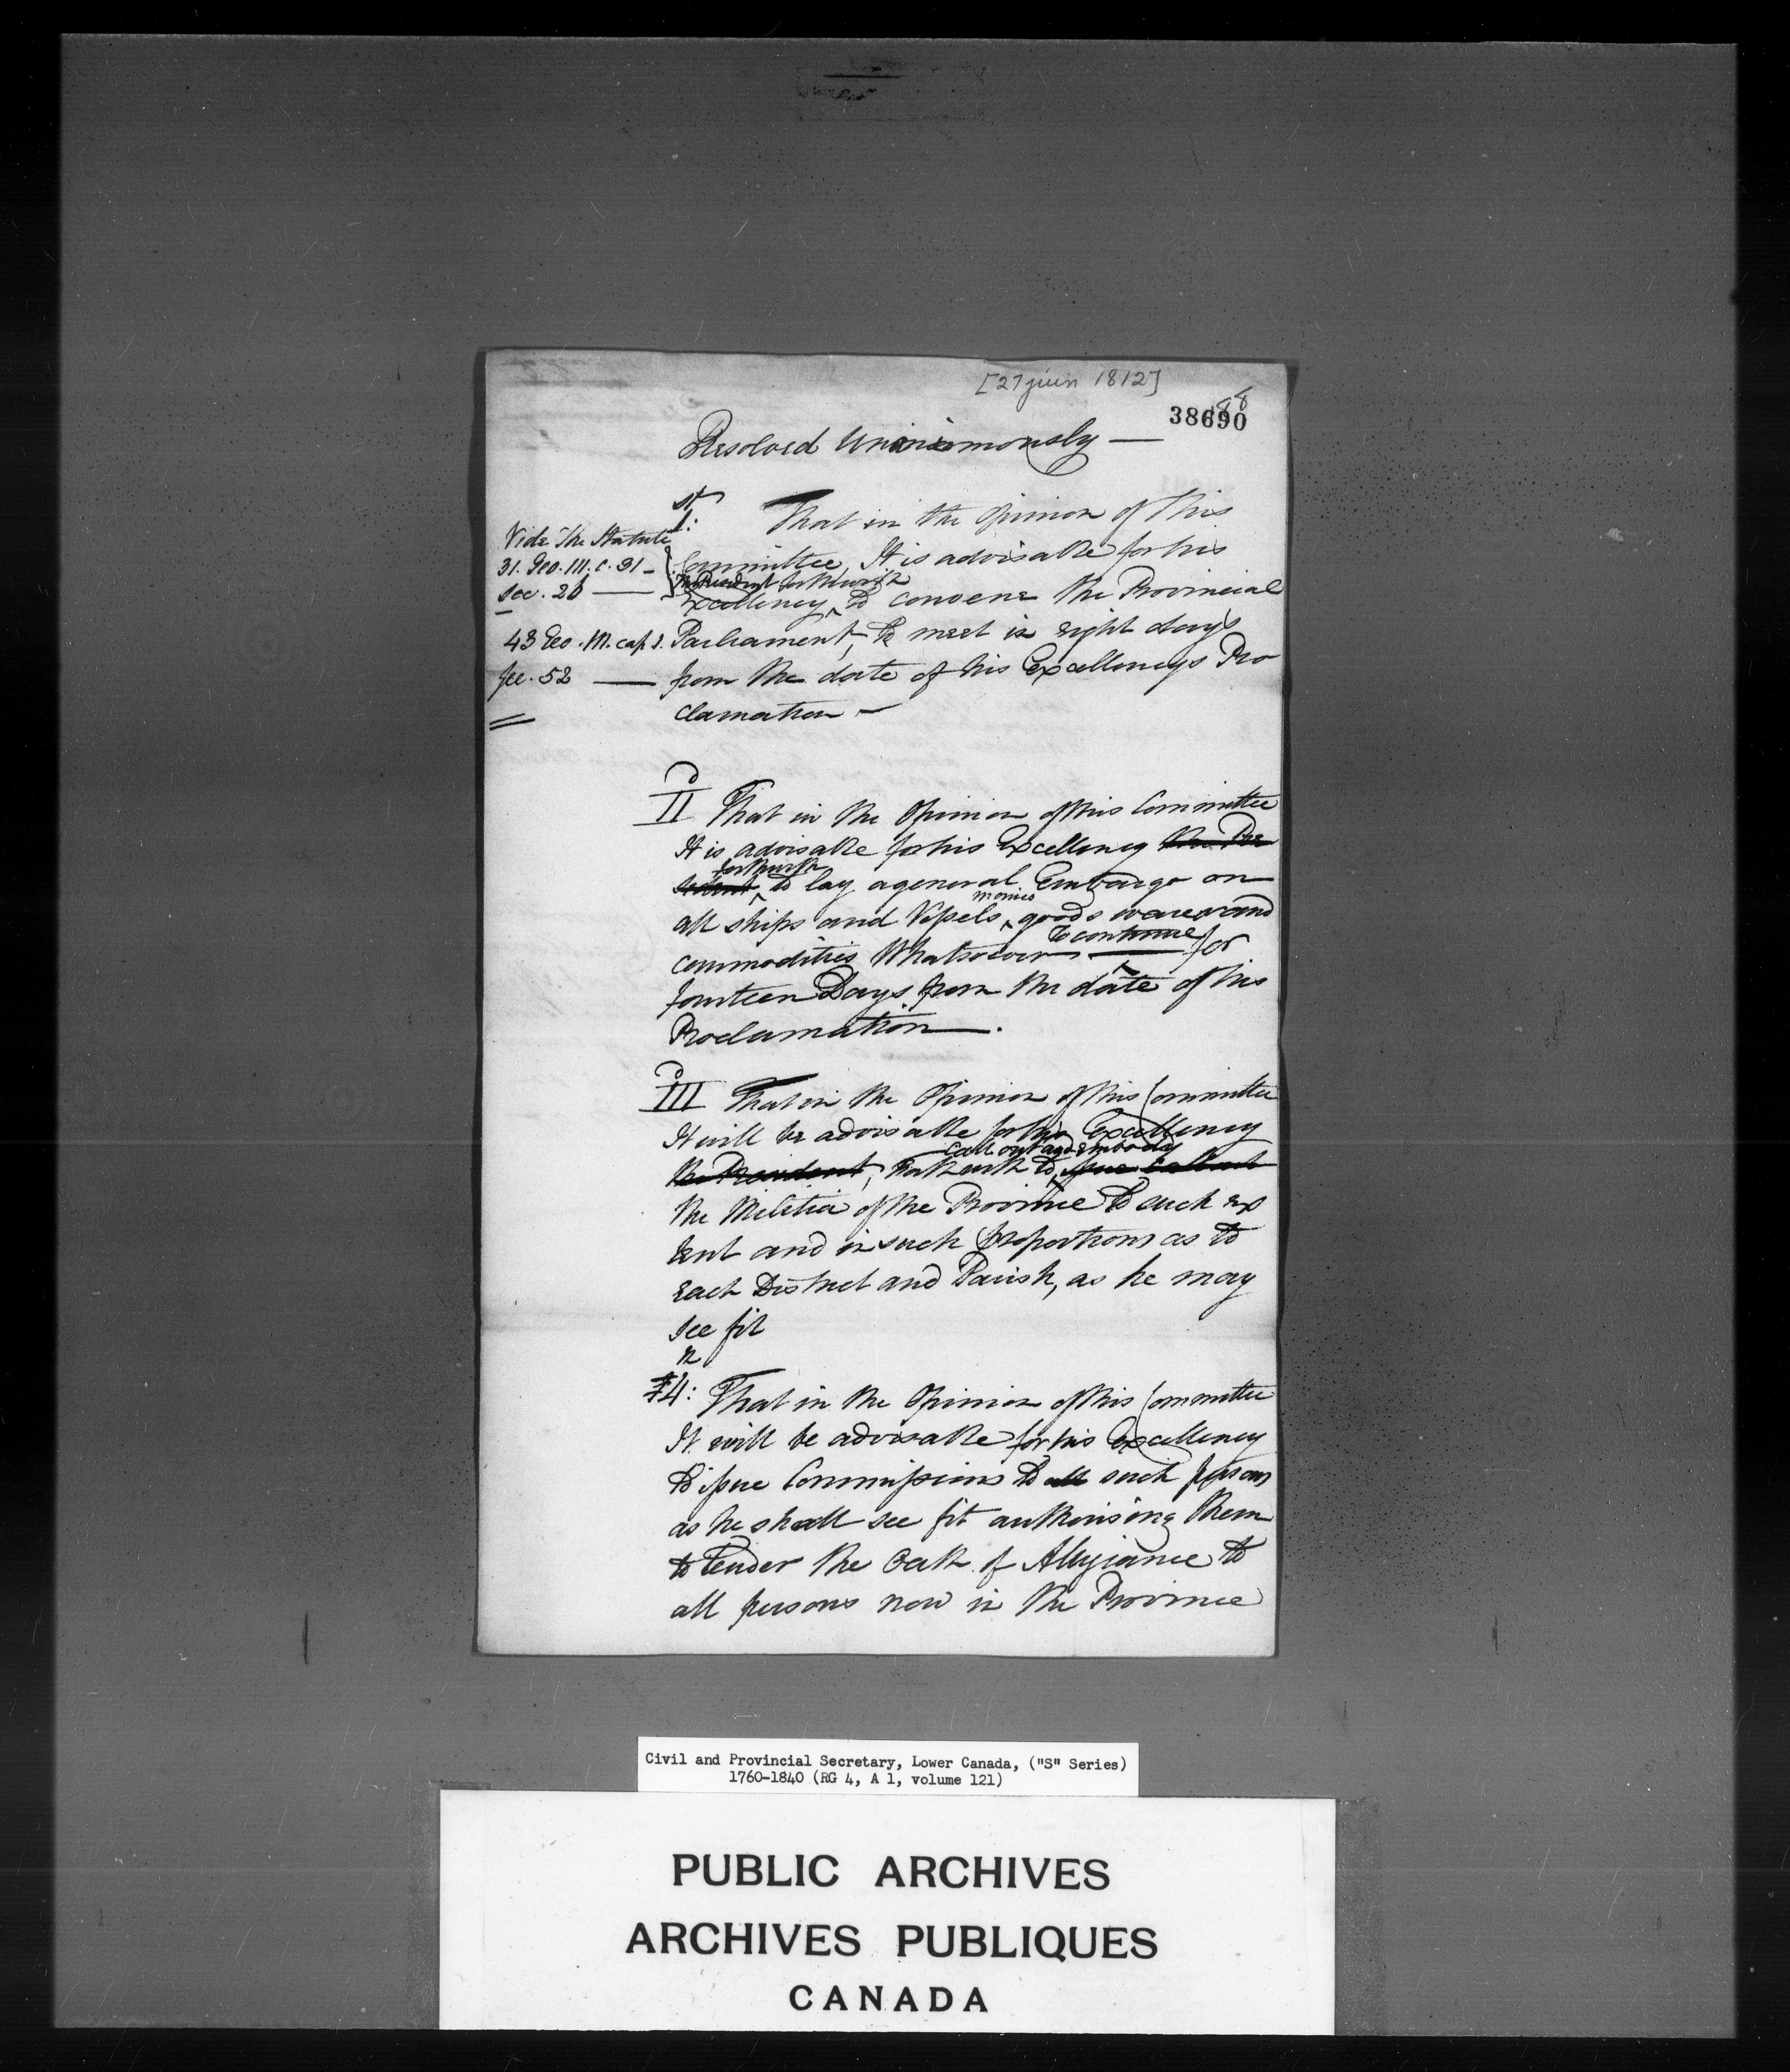 [27 juin 1812]
38690
88
Resolved Unanimously —
1st: That in the Opinion of this
Vide The Statute
31. Geo. III. c. 31 —
Sec. 26 —
Committee, It is advisable for his
the President forthwith
Excellency to convene the Provincial
43 Geo. III. cap 1.
Sec. 52 —
Parliament, to meet in eight days
from the date of his Excellencys Pro
clamation —
II That in the Opinion of this Committee
It is advisable for his Excellency the Pre
forthwith
sident to lay a general Embargo on
monies
all ships and Vessels, goods wares and
to continue
commodities Whatsoever — for
fourteen Days from the date of his
Proclamation —.
III That in the Opinion of this Committee
It will be advisable for his Excellency
call out and embody
the President, forthwith to issue call out
the Militia of the Province to such ex
tent and in such proportions as to
each District and Parish, as he may
see fit
4: That in the Opinion of this Committee
It will be advisable for his Excellency
to issue Commissions to all such persons
as he shall see fit authorising them
to tender the Oath of Allegiance to
all persons now in the Province
Civil and Provincial Secretary, Lower Canada, ("S" Series)
1760-1840 (RG 4, A 1, volume 121)
PUBLIC ARCHIVES
ARCHIVES PUBLIQUES
CANADA